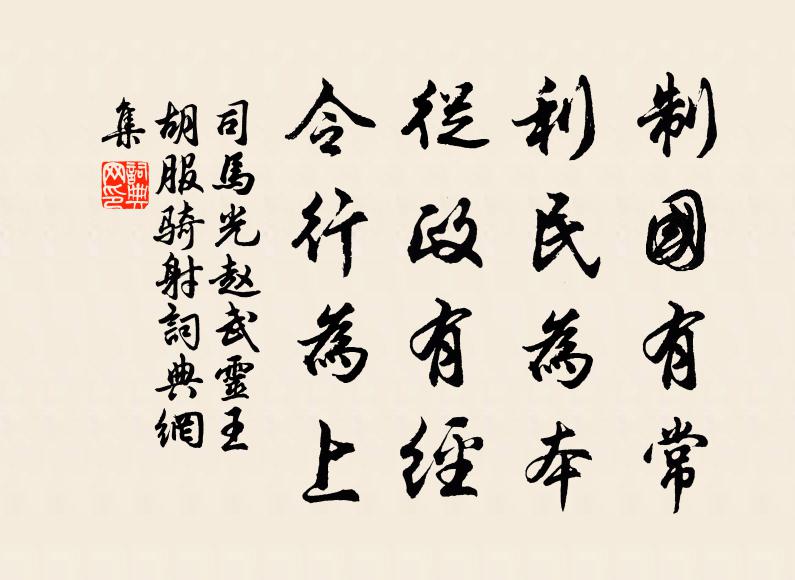 制國有常
利民為本
從政有經
令行為上
司馬光赵武靈王
胡服骑射詞典網
集
詞典
网印